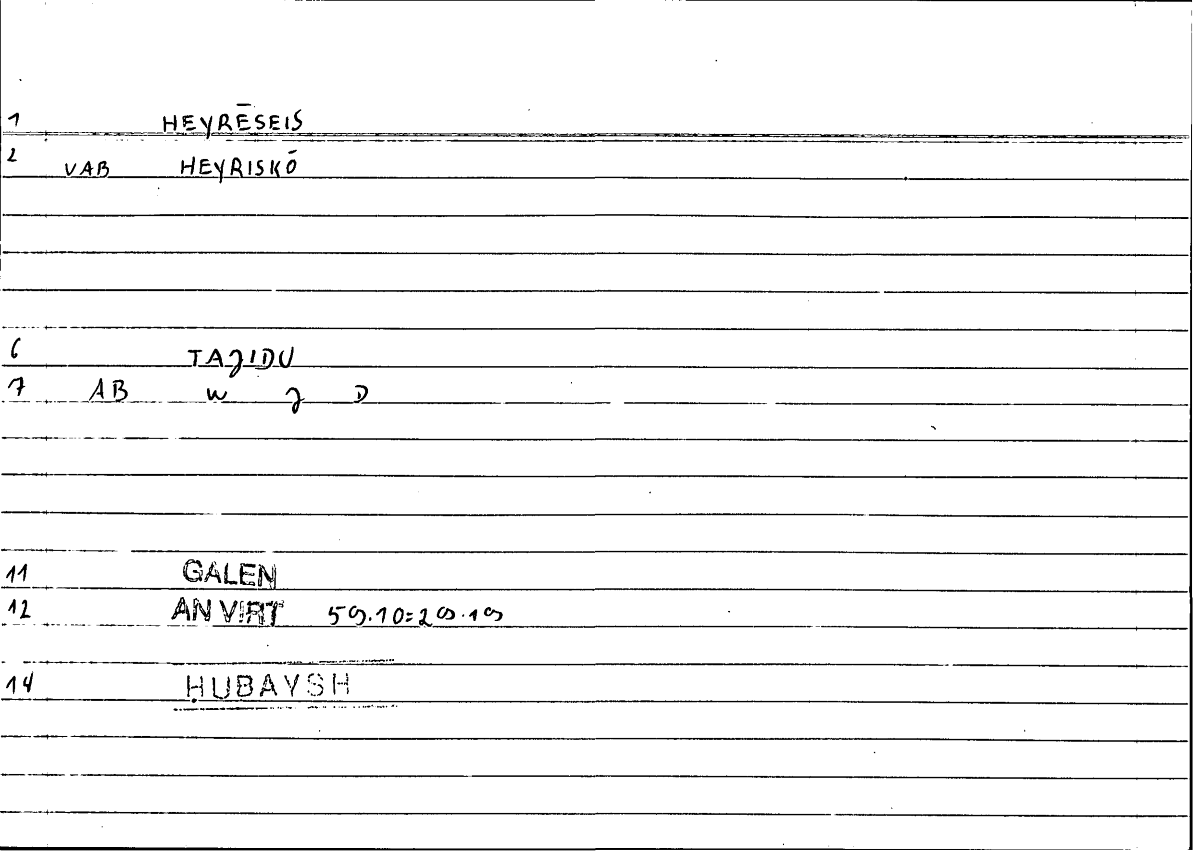 1 HEYRĒSEIS
2 VAB HEYRISKŌ
6 TAJIDU
7 AB W J D
11 GALEN
12 AN VIRT 59.10=29.19
14 ḤUBAYSH